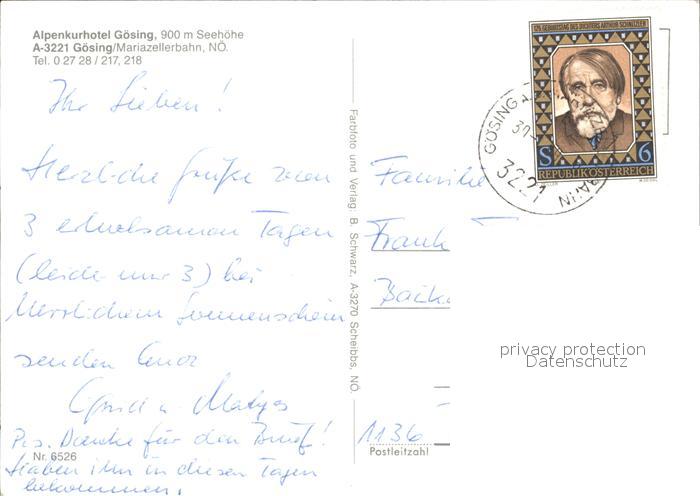 Alpenkurhotel Gösing, 900 m Seehöhe
A-3221 Gösing/Mariazellerbahn, NÖ.
Tel. 0 27 28 / 217, 218
Ihr Lieben!
Herzliche Grüße von
3 erholsamen Tagen
(leider nur 3) bei
herrlichem Sonnenschein
senden Euch
u.
P.s. Danke für den Brief!
Nr. 6526
Haben ihn in diesen Tagen
bekommen.
Farbfoto und Verlag: B. Schwarz, A-3270 Scheibbs, NÖ.
125. GEBURTSTAG DES DICHTERS ARTHUR SCHNITZLER
S 6
REPUBLIK ÖSTERREICH
GÖSING
3221
Familie
Frank
privacy protection
Datenschutz
1136
Postleitzahl